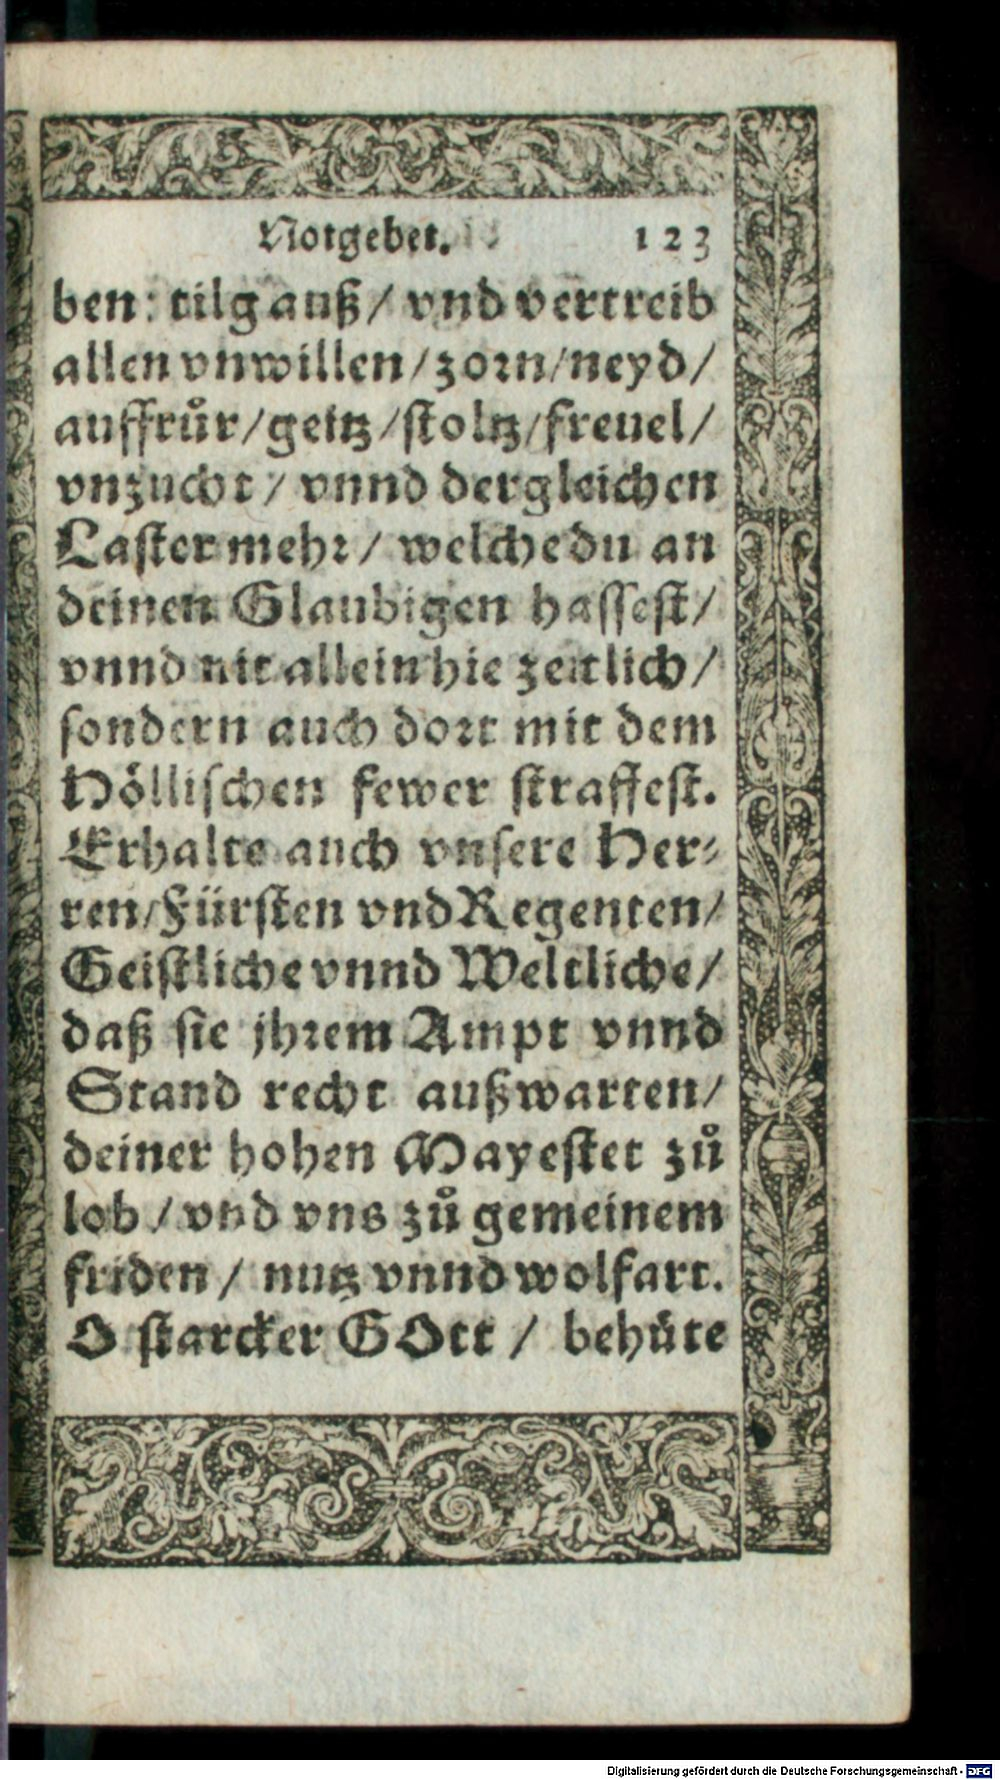 Notgebet. 123
ben: tilg auß / vnd vertreib
allen vnwillen / zorn / neyd /
auffrůr / geitz / stoltz / freuel /
vnzucht / vnnd dergleichen
Laster mehr / welche du an
deinen Glaubigen hassest /
vnnd nit allein hie zeitlich /
sondern auch dort mit dem
Höllischen fewer straffest.
Erhalte auch vnsere Her-
ren / Fürsten vnd Regenten /
Geistliche vnnd Weltliche /
daß sie jhrem Ampt vnnd
Stand recht außwarten /
deiner hohen Mayestet zů
lob / vnd vns zů gemeinem
friden / nutz vnnd wolfart.
O starcker GOtt / behüte
Digitalisierung gefördert durch die Deutsche Forschungsgemeinschaft - DFG